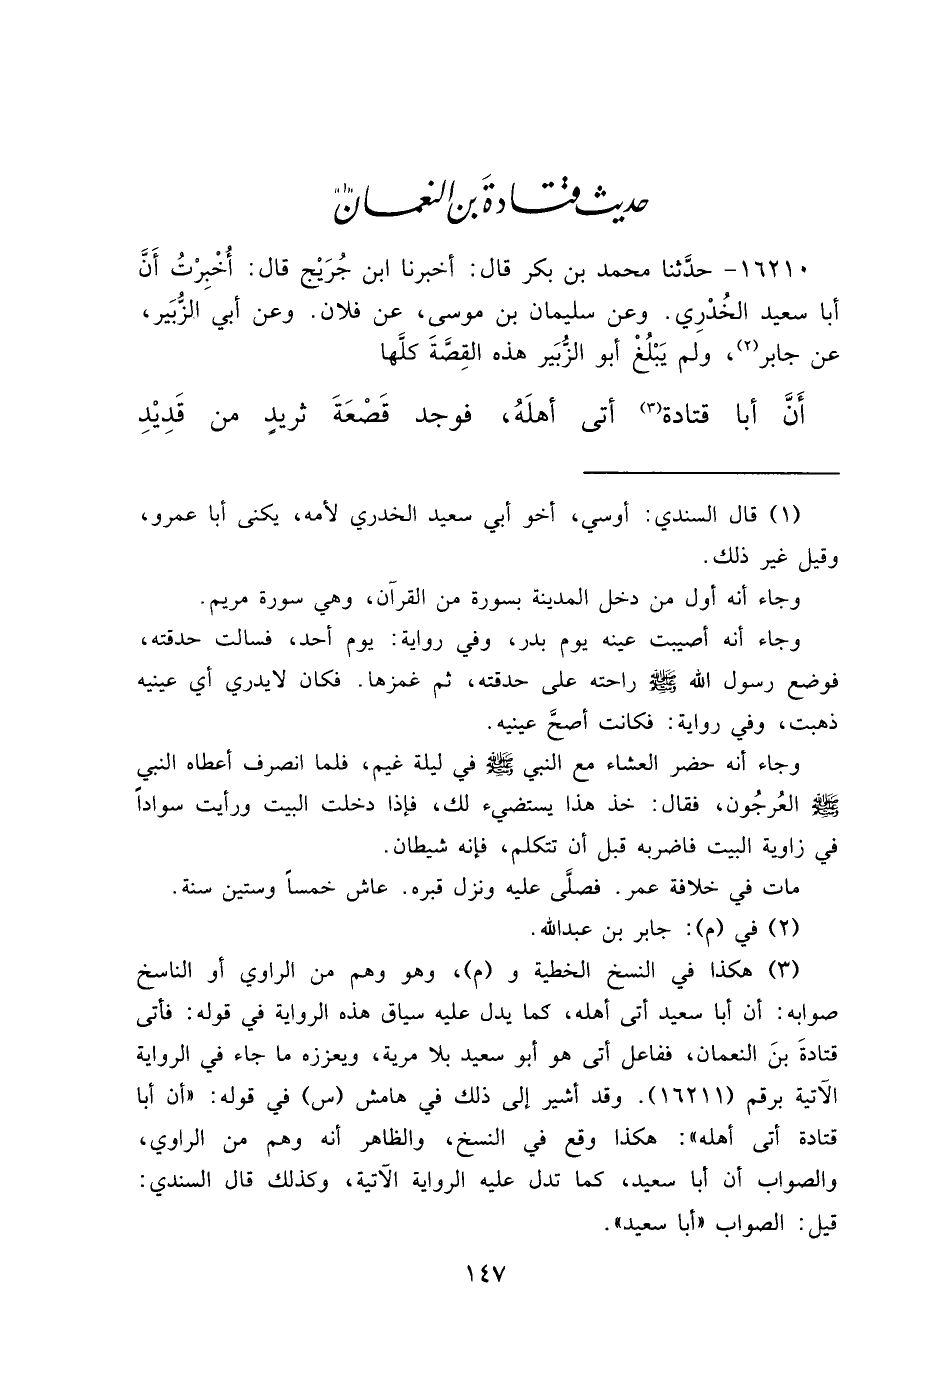 حديث قتادةَ بن النعمان⁽¹⁾
١٦٢١٠- حدَّثنا محمد بن بكر قال: أخبرنا ابن جُرَيْج قال: أُخْبِرْتُ أَنَّ
أبا سعيد الخُدْرِي. وعن سليمان بن موسى، عن فلان. وعن أبي الزُّبَير،
عن جابر(٢)، ولم يَبْلُغْ أبو الزُّبَير هذه القِصَّةَ كلَّها
أَنَّ أبا قتادة(٣) أتى أهلَهُ، فوجد قَصْعَةَ ثريدٍ من قَدِيْدِ
(١) قال السندي: أوسي، أخو أبي سعيد الخدري لأمه، يكنى أبا عمرو،
وقيل غير ذلك.
وجاء أنه أول من دخل المدينة بسورة من القرآن، وهي سورة مريم.
وجاء أنه أصيبت عينه يوم بدر، وفي رواية: يوم أحد، فسالت حدقته،
فوضع رسول الله ﷺ راحته على حدقته، ثم غمزها. فكان لايدري أي عينيه
ذهبت، وفي رواية: فكانت أصحَّ عينيه.
وجاء أنه حضر العشاء مع النبي ﷺ في ليلة غيم، فلما انصرف أعطاه النبي
ﷺ العُرجُون، فقال: خذ هذا يستضيء لك، فإذا دخلت البيت ورأيت سواداً
في زاوية البيت فاضربه قبل أن تتكلم، فإنه شيطان.
مات في خلافة عمر. فصلَّى عليه ونزل قبره. عاش خمساً وستين سنة.
(٢) في (م): جابر بن عبدالله.
(٣) هكذا في النسخ الخطية و (م)، وهو وهم من الراوي أو الناسخ
صوابه: أن أبا سعيد أتى أهله، كما يدل عليه سياق هذه الرواية في قوله: فأتى
قتادةَ بنَ النعمان، ففاعل أتى هو أبو سعيد بلا مرية، ويعززه ما جاء في الرواية
الآتية برقم (١٦٢١١). وقد أشير إلى ذلك في هامش (س) في قوله: «أن أبا
قتادة أتى أهله»: هكذا وقع في النسخ، والظاهر أنه وهم من الراوي،
والصواب أن أبا سعيد، كما تدل عليه الرواية الآتية، وكذلك قال السندي:
قيل: الصواب «أبا سعيد».
١٤٧